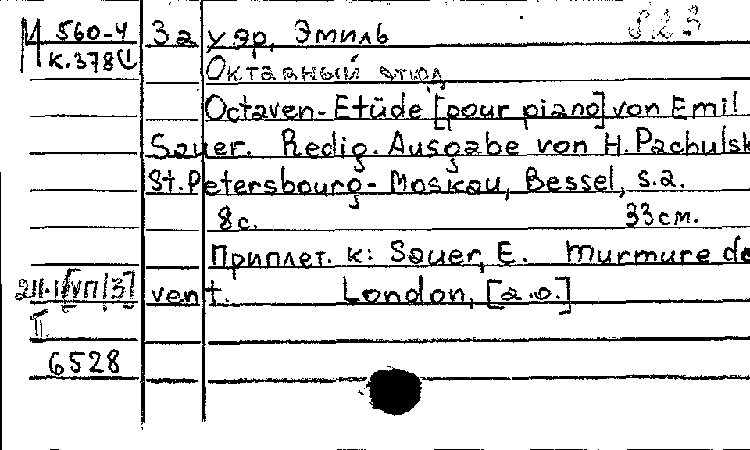 М 560-4
К.378(1
Зауэр, Эмиль
Октавный этюд
Octaven-Etüde [pour piano] von Emil
Sauer. Redig. Ausgabe von H. Pachulsk
St.Petersbourg-Moskau, Bessel, s.a.
8с. 33см.
Приплет. к: Sauer, E. Murmure de
vent. London, [a.o.]
II
6528